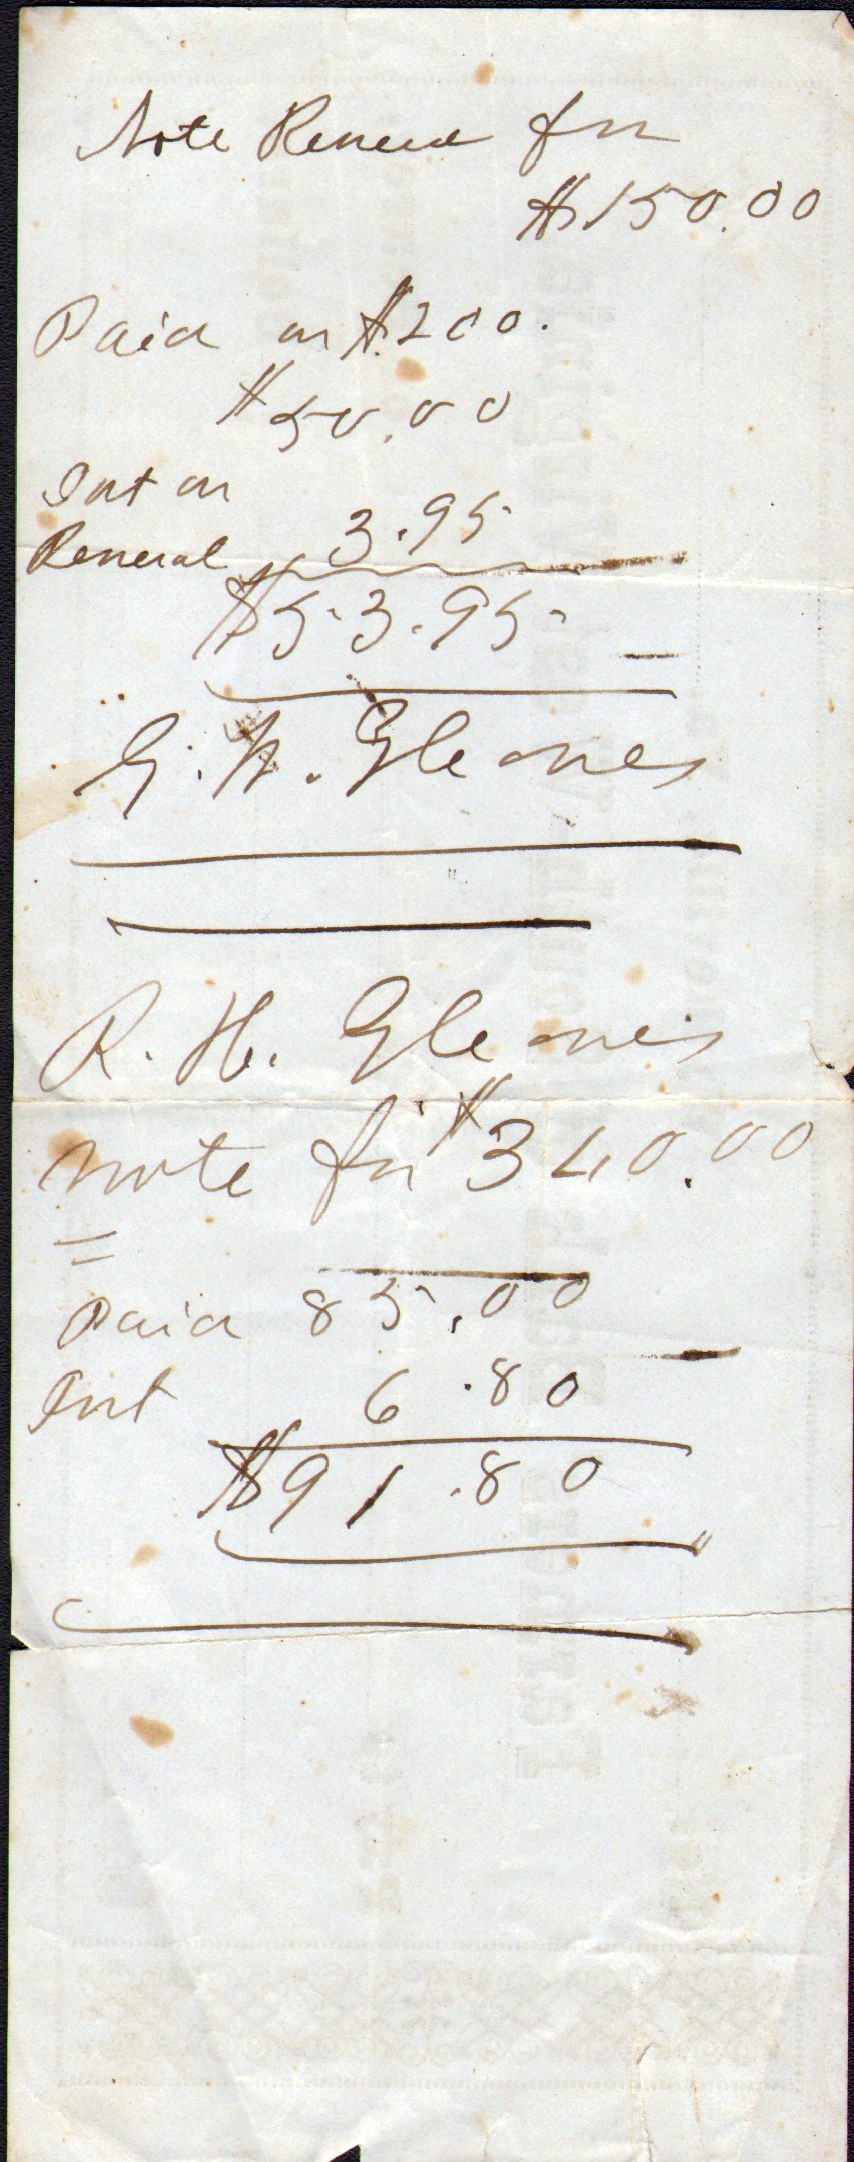 Note Renewed for
$150.00
Paid on $200.
$50.00
Int on
Renewal 3.95
$53.95
G. W. Gleaves
R. H. Gleaves
note for $340.00
Paid 85.00
Int 6.80
$91.80